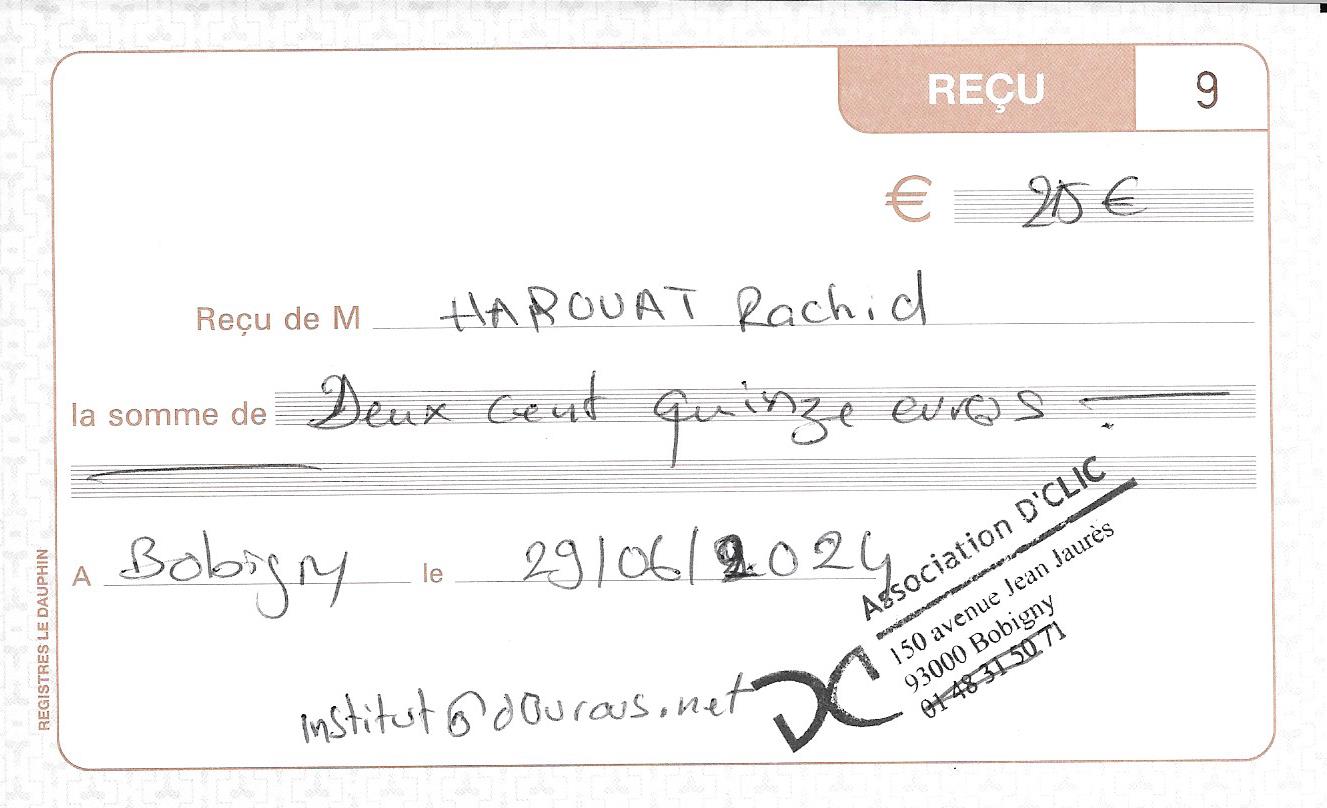 REÇU 9
€ 215 €
Reçu de M HAROUAT Rachid
la somme de Deux cent quinze euros
A Bobigny le 29/06/2024
Association D'CLIC
150 avenue Jean Jaurès
93000 Bobigny
01 48 31 50 71
DC
REGISTRES LE DAUPHIN